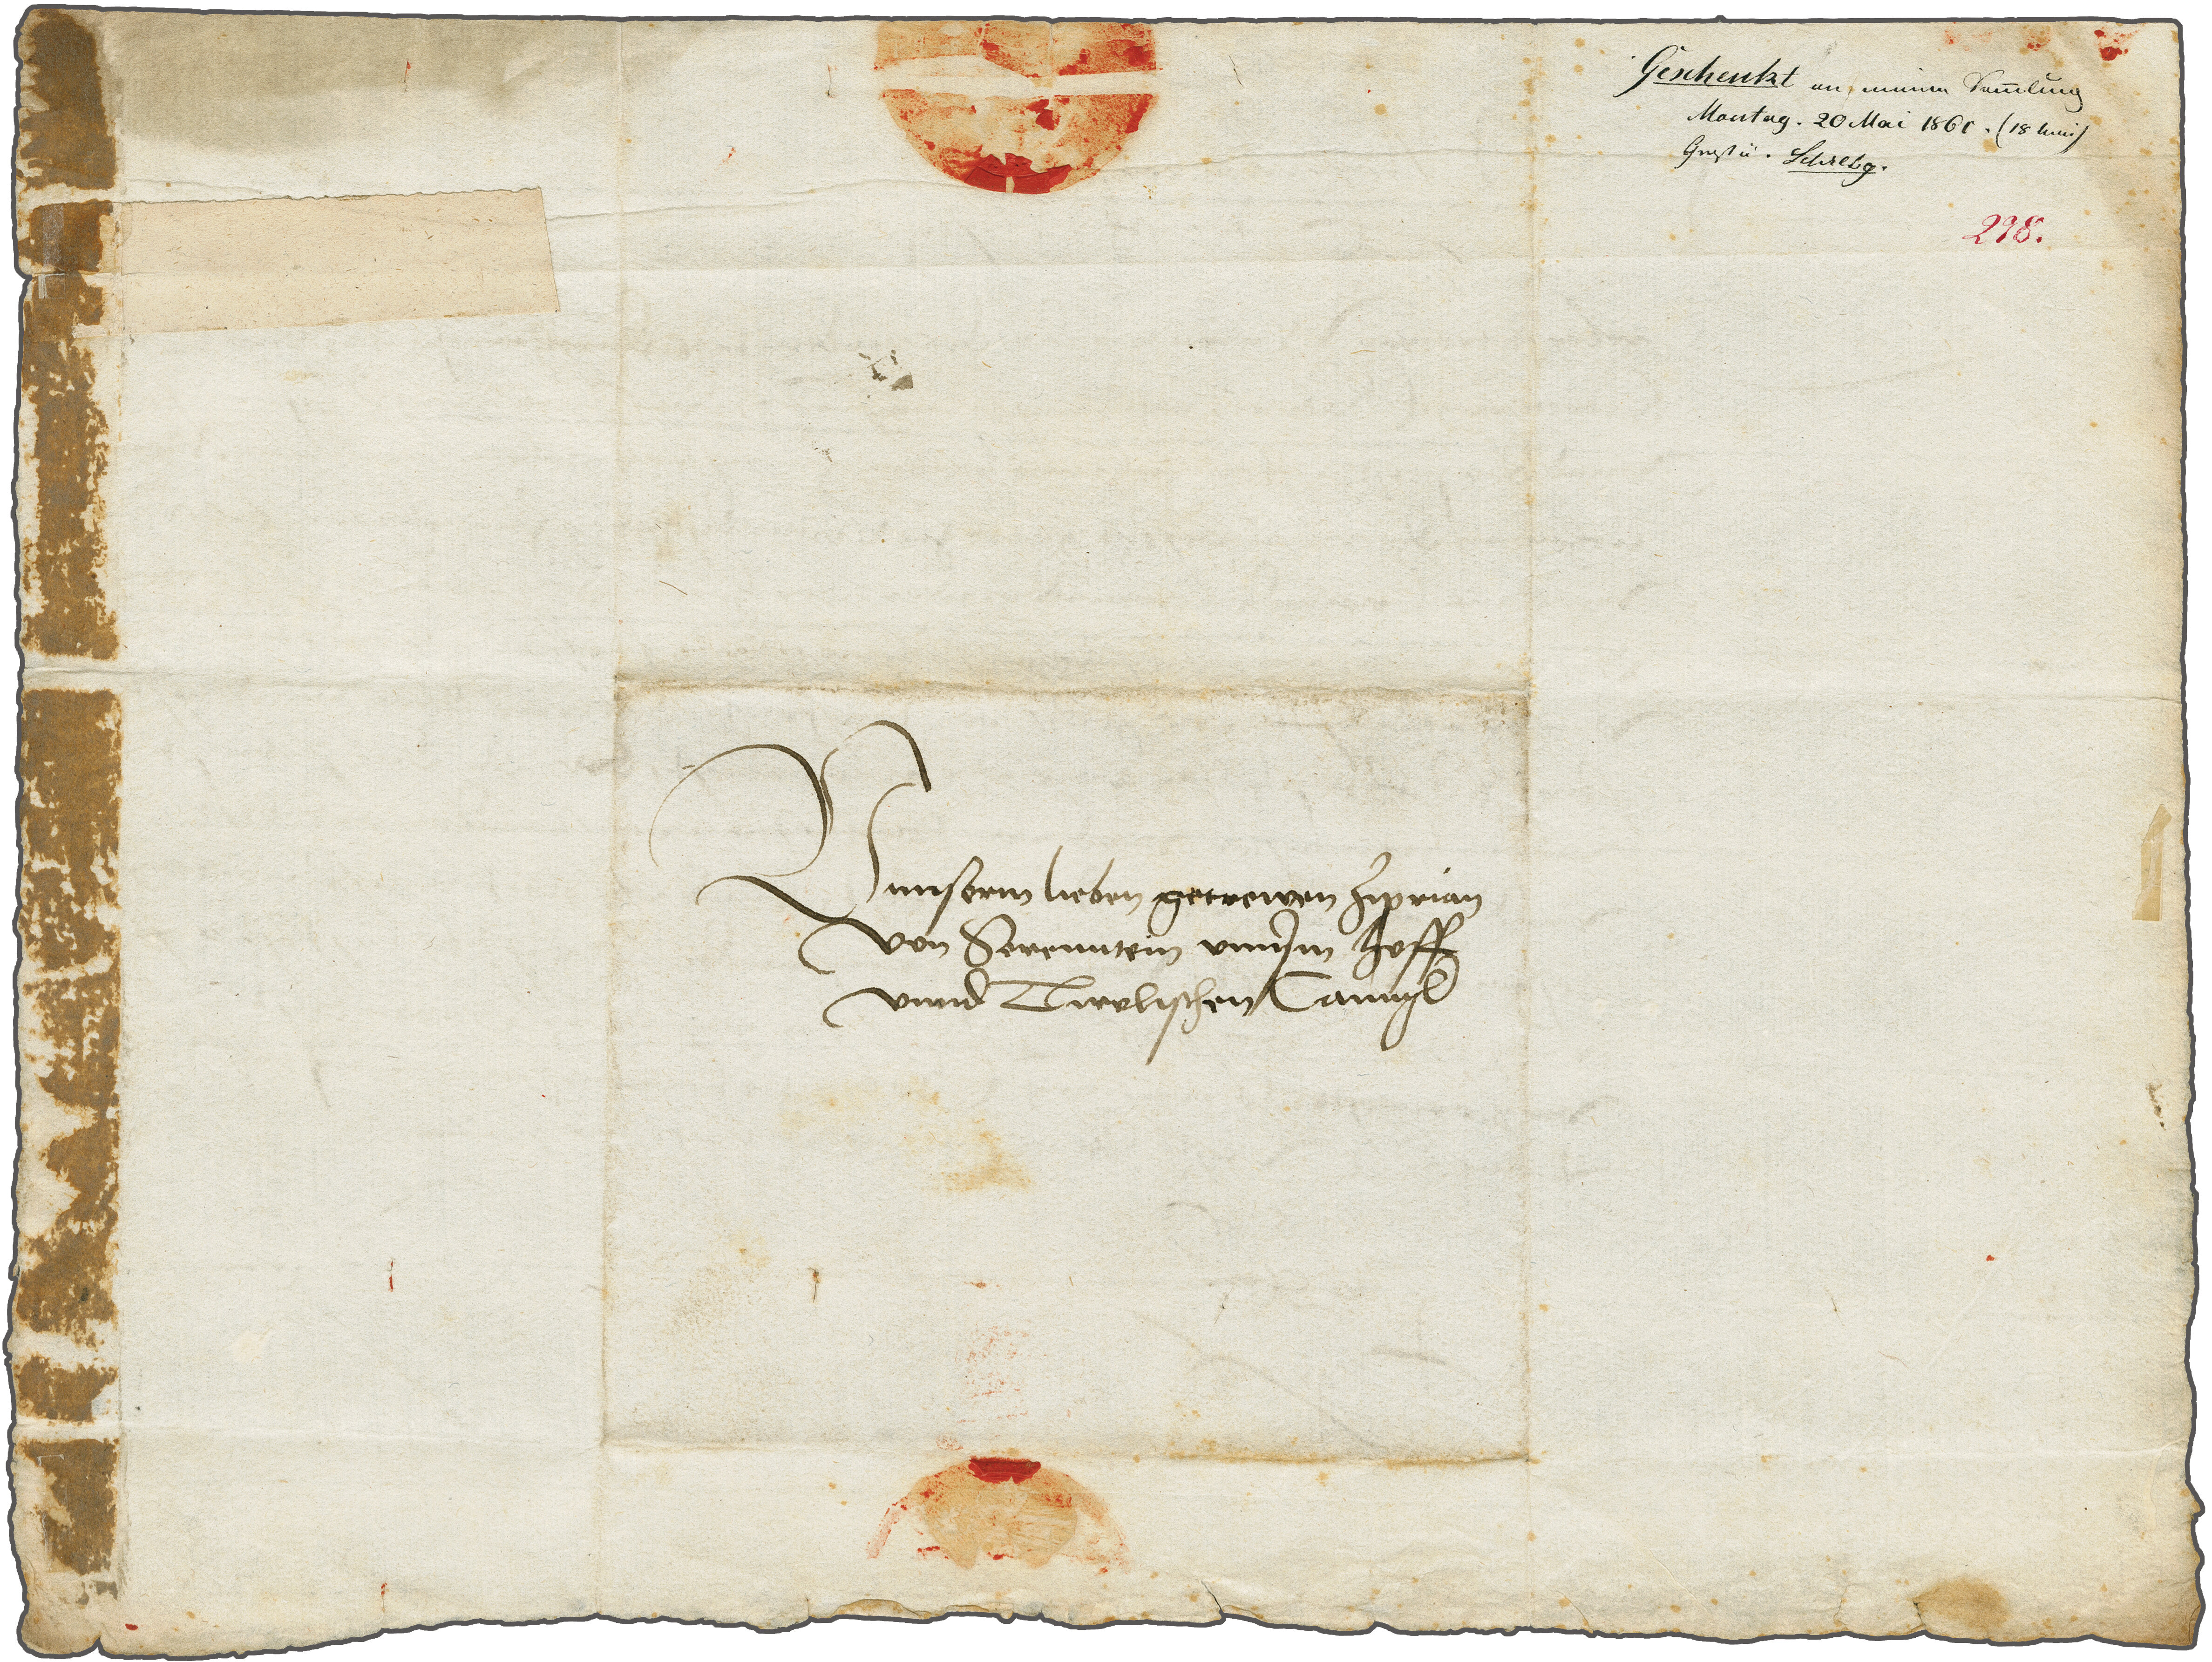 Geschenkt an meine Sam̅lung
Montag. 20 Mai 1861. (18
Schrbg.
298.
Vnnserm lieben getrewen Ziprian
von Serenntein vnnserm Hoff
vnnd Tirolischen Canntzl